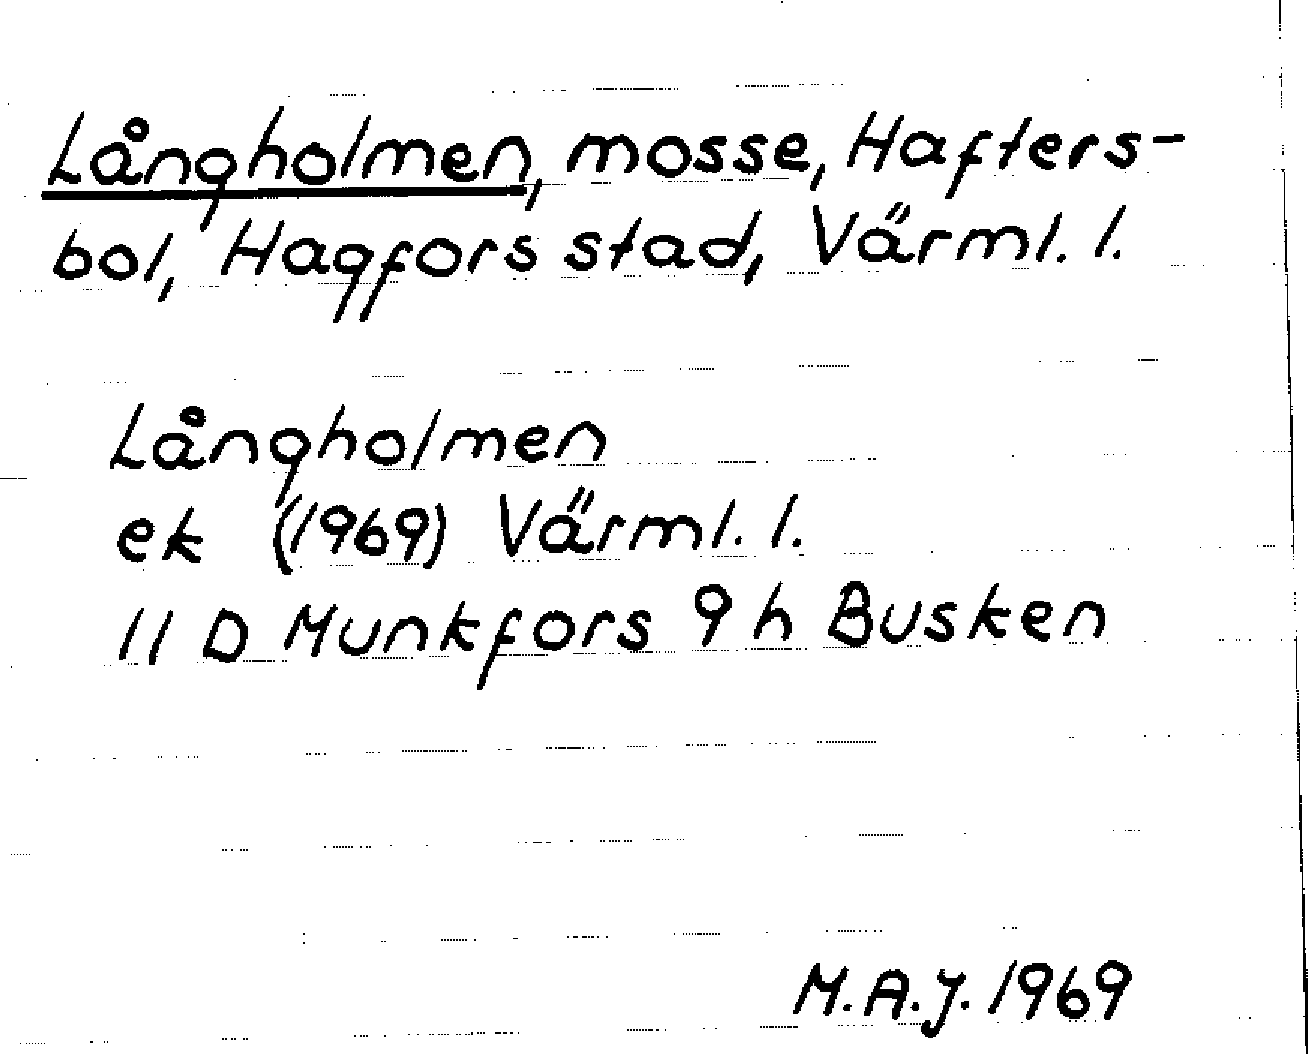 Långholmen, mosse, Hafters-
bol, Hagfors stad, Värml. l.
Långholmen
ek (1969) Värml. l.
11 D Munkfors 9 h Busken
M.A.J. 1969